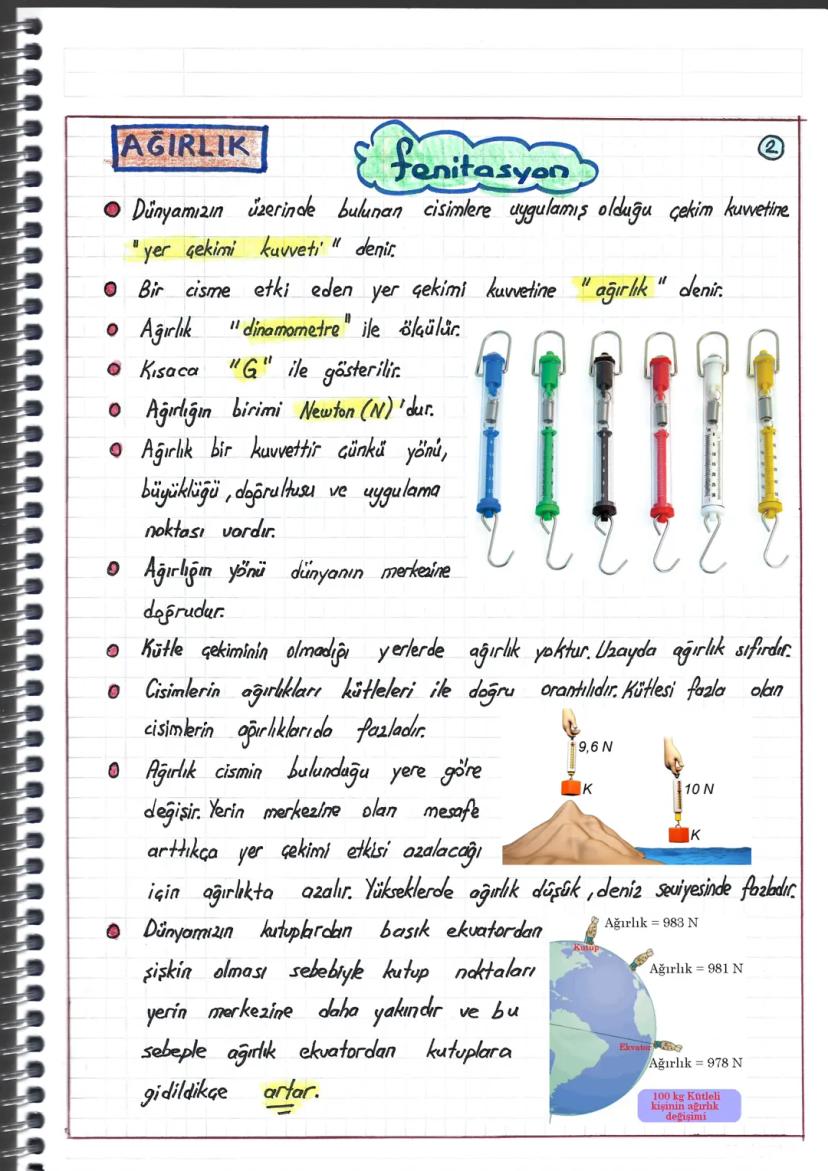 AĞIRLIK
fenitasyon
2
Dünyamızın üzerinde bulunan cisimlere uygulamış olduğu çekim kuvvetine
"yer çekimi kuvveti" denir.
Bir cisme etki eden yer çekimi kuvvetine "ağırlık" denir.
Ağırlık "dinamometre" ile ölçülür.
Kısaca "G" ile gösterilir.
Ağırlığın birimi Newton (N)'dur.
Ağırlık bir kuvvettir çünkü yönü,
büyüklüğü, doğrultusu ve uygulama
noktası vardır.
Ağırlığın yönü dünyanın merkezine
doğrudur.
Kütle çekiminin olmadığı yerlerde ağırlık yoktur. Uzayda ağırlık sıfırdır.
Cisimlerin ağırlıkları kütleleri ile doğru orantılıdır. Kütlesi fazla olan
cisimlerin ağırlıklarıda fazladır.
9,6 N
K
10 N
K
Ağırlık cismin bulunduğu yere göre
değişir. Yerin merkezine olan mesafe
arttıkça yer çekimi etkisi azalacağı
için ağırlıkta azalır. Yükseklerde ağırlık düşük, deniz seviyesinde fazladır.
Dünyamızın kutuplardan basık ekvatordan
şişkin olması sebebiyle kutup noktaları
yerin merkezine daha yakındır ve bu
sebeple ağırlık ekvatordan kutuplara
gidildikçe artar.
Ağırlık = 983 N
Kutup
Ağırlık = 981 N
Ekvator
Ağırlık = 978 N
100 kg Kütleli
kişinin ağırlık
değişimi